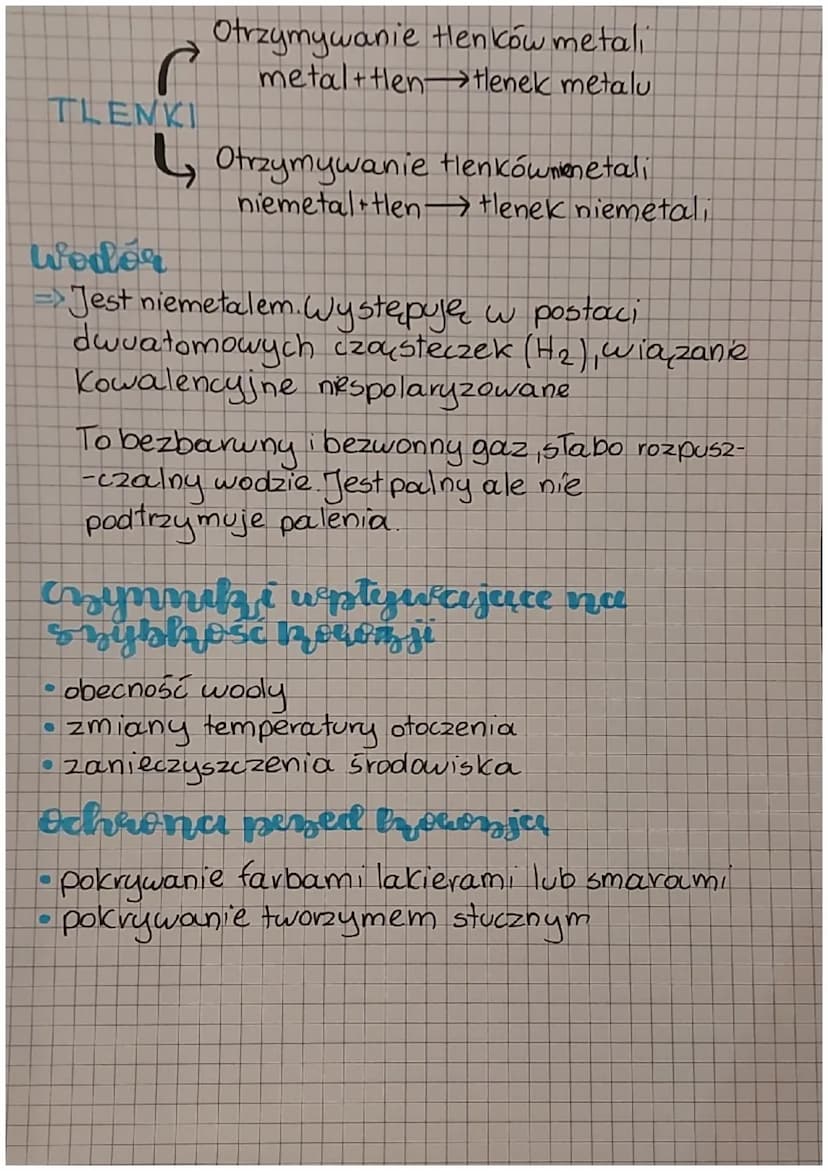 Otrzymywanie tlenków metali
metal + tlen → tlenek metalu
TLENKI
Otrzymywanie tlenków niemetali
niemetal + tlen → tlenek niemetali
Wodór
⇒ Jest niemetalem. Występuję w postaci
dwuatomowych cząsteczek (H₂), wiązanie
Kowalencyjne niespolaryzowane
To bezbarwny i bezwonny gaz, słabo rozpusz-
-czalny wodzie. Jest palny ale nie
podtrzymuje palenia.
Czynniki wpływające na
szybkość korozji
• obecność wody
• zmiany temperatury otoczenia
• zanieczyszczenia środowiska
Ochrona przed korozją
• pokrywanie farbami lakierami lub smarami
• pokrywanie tworzymem stucznym